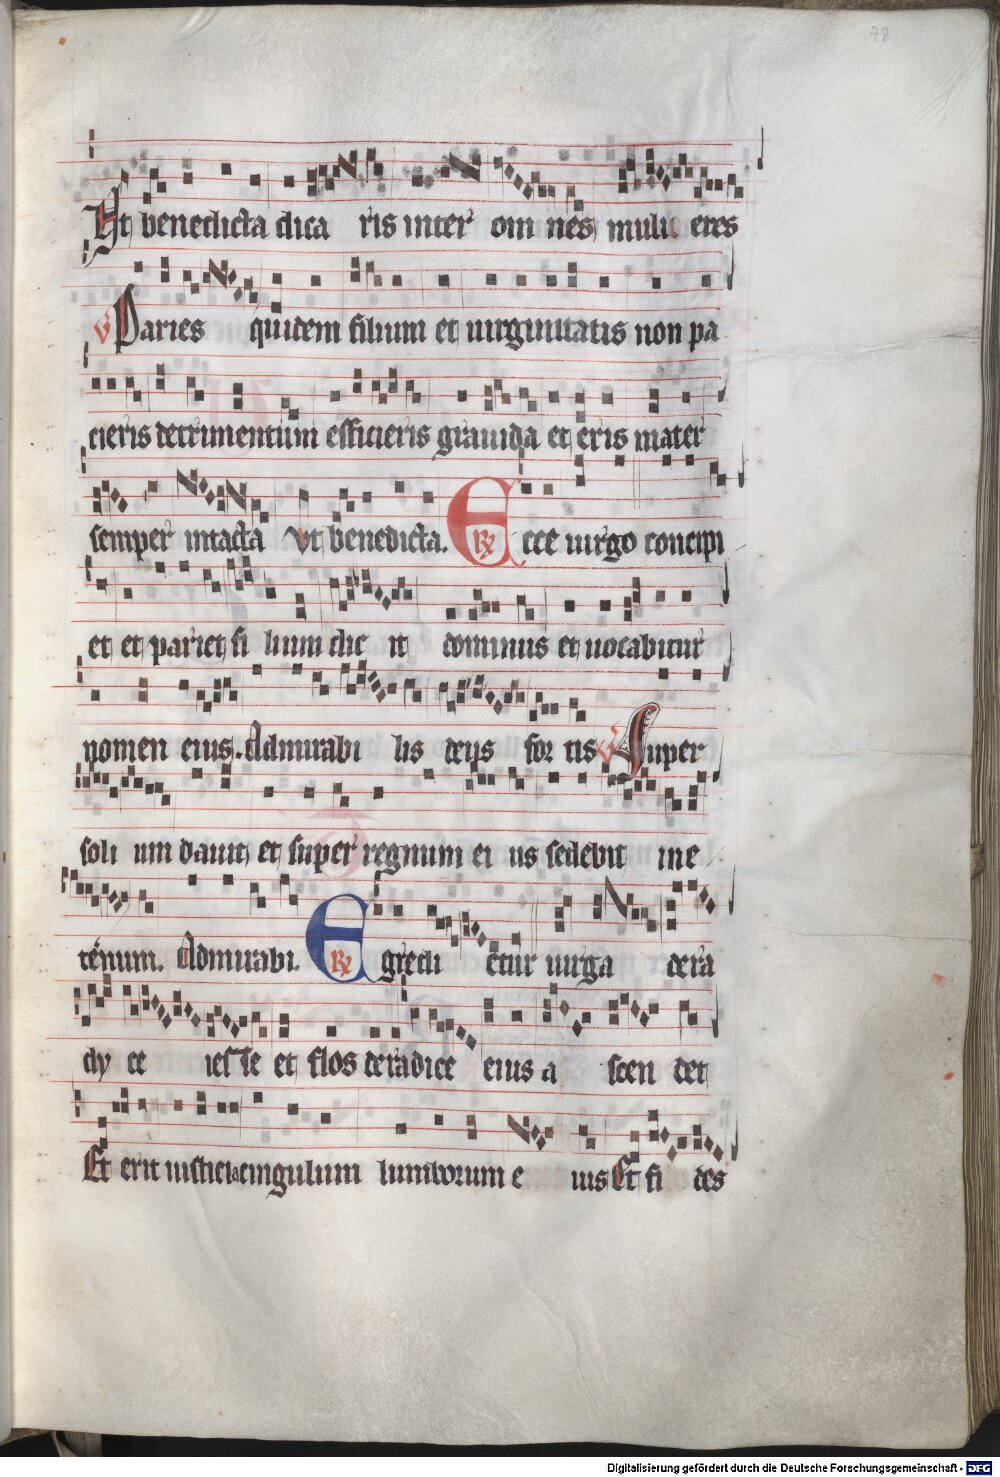 78
Vt benedicta dica ris inter om nes muli eres
v Paries quidem filium et uirginitatis non pa
cieris detrimentum efficieris grauida et eris mater
semper intacta Vt benedicta. Rx Ecce uirgo concipi
et et pariet fi lium dic it dominus et uocabitur
nomen eius. Admirabi lis deus for tis v Super
soli um dauit et super regnum ei us sedebit in e
ternum. Admirabi. Rx Egredi etur uirga de ra
dy ce iesse et flos de radice eius a scen det
Et erit iusticia cingulum lumborum e ius Et fi des
Digitalisierung gefördert durch die Deutsche Forschungsgemeinschaft - DFG